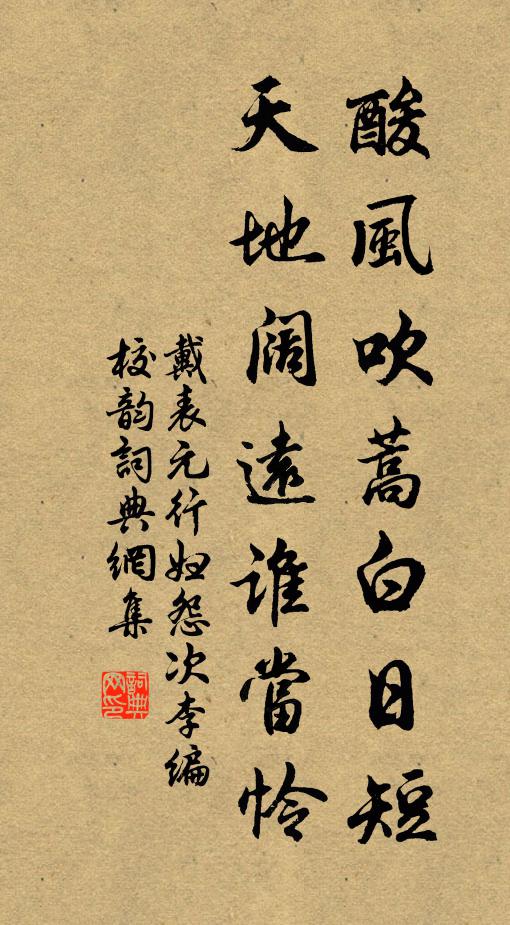 酸風吹蒿白日短
天地闊遠誰當憐
戴表元行婦怨次李編
校韵詞典網集
詞典網印